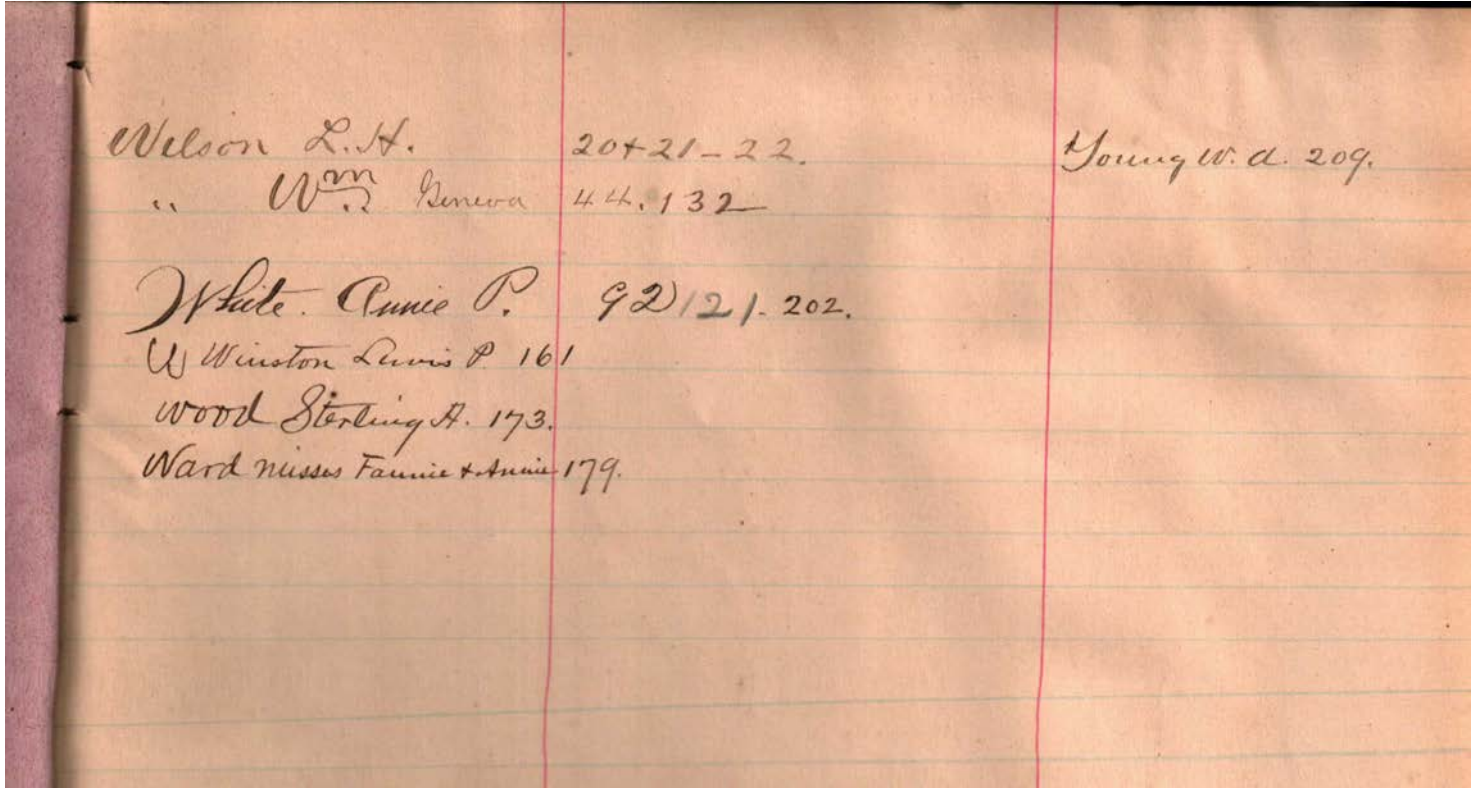 Wilson L. H. 20+21-22.
" Wm Geneva 44. 132
White. Annie P. 92) 121- 202.
W Winston Lewis P. 161
Wood Sterling A. 173.
Ward misses Fannie & Annie 179.
Young W. A. 209.